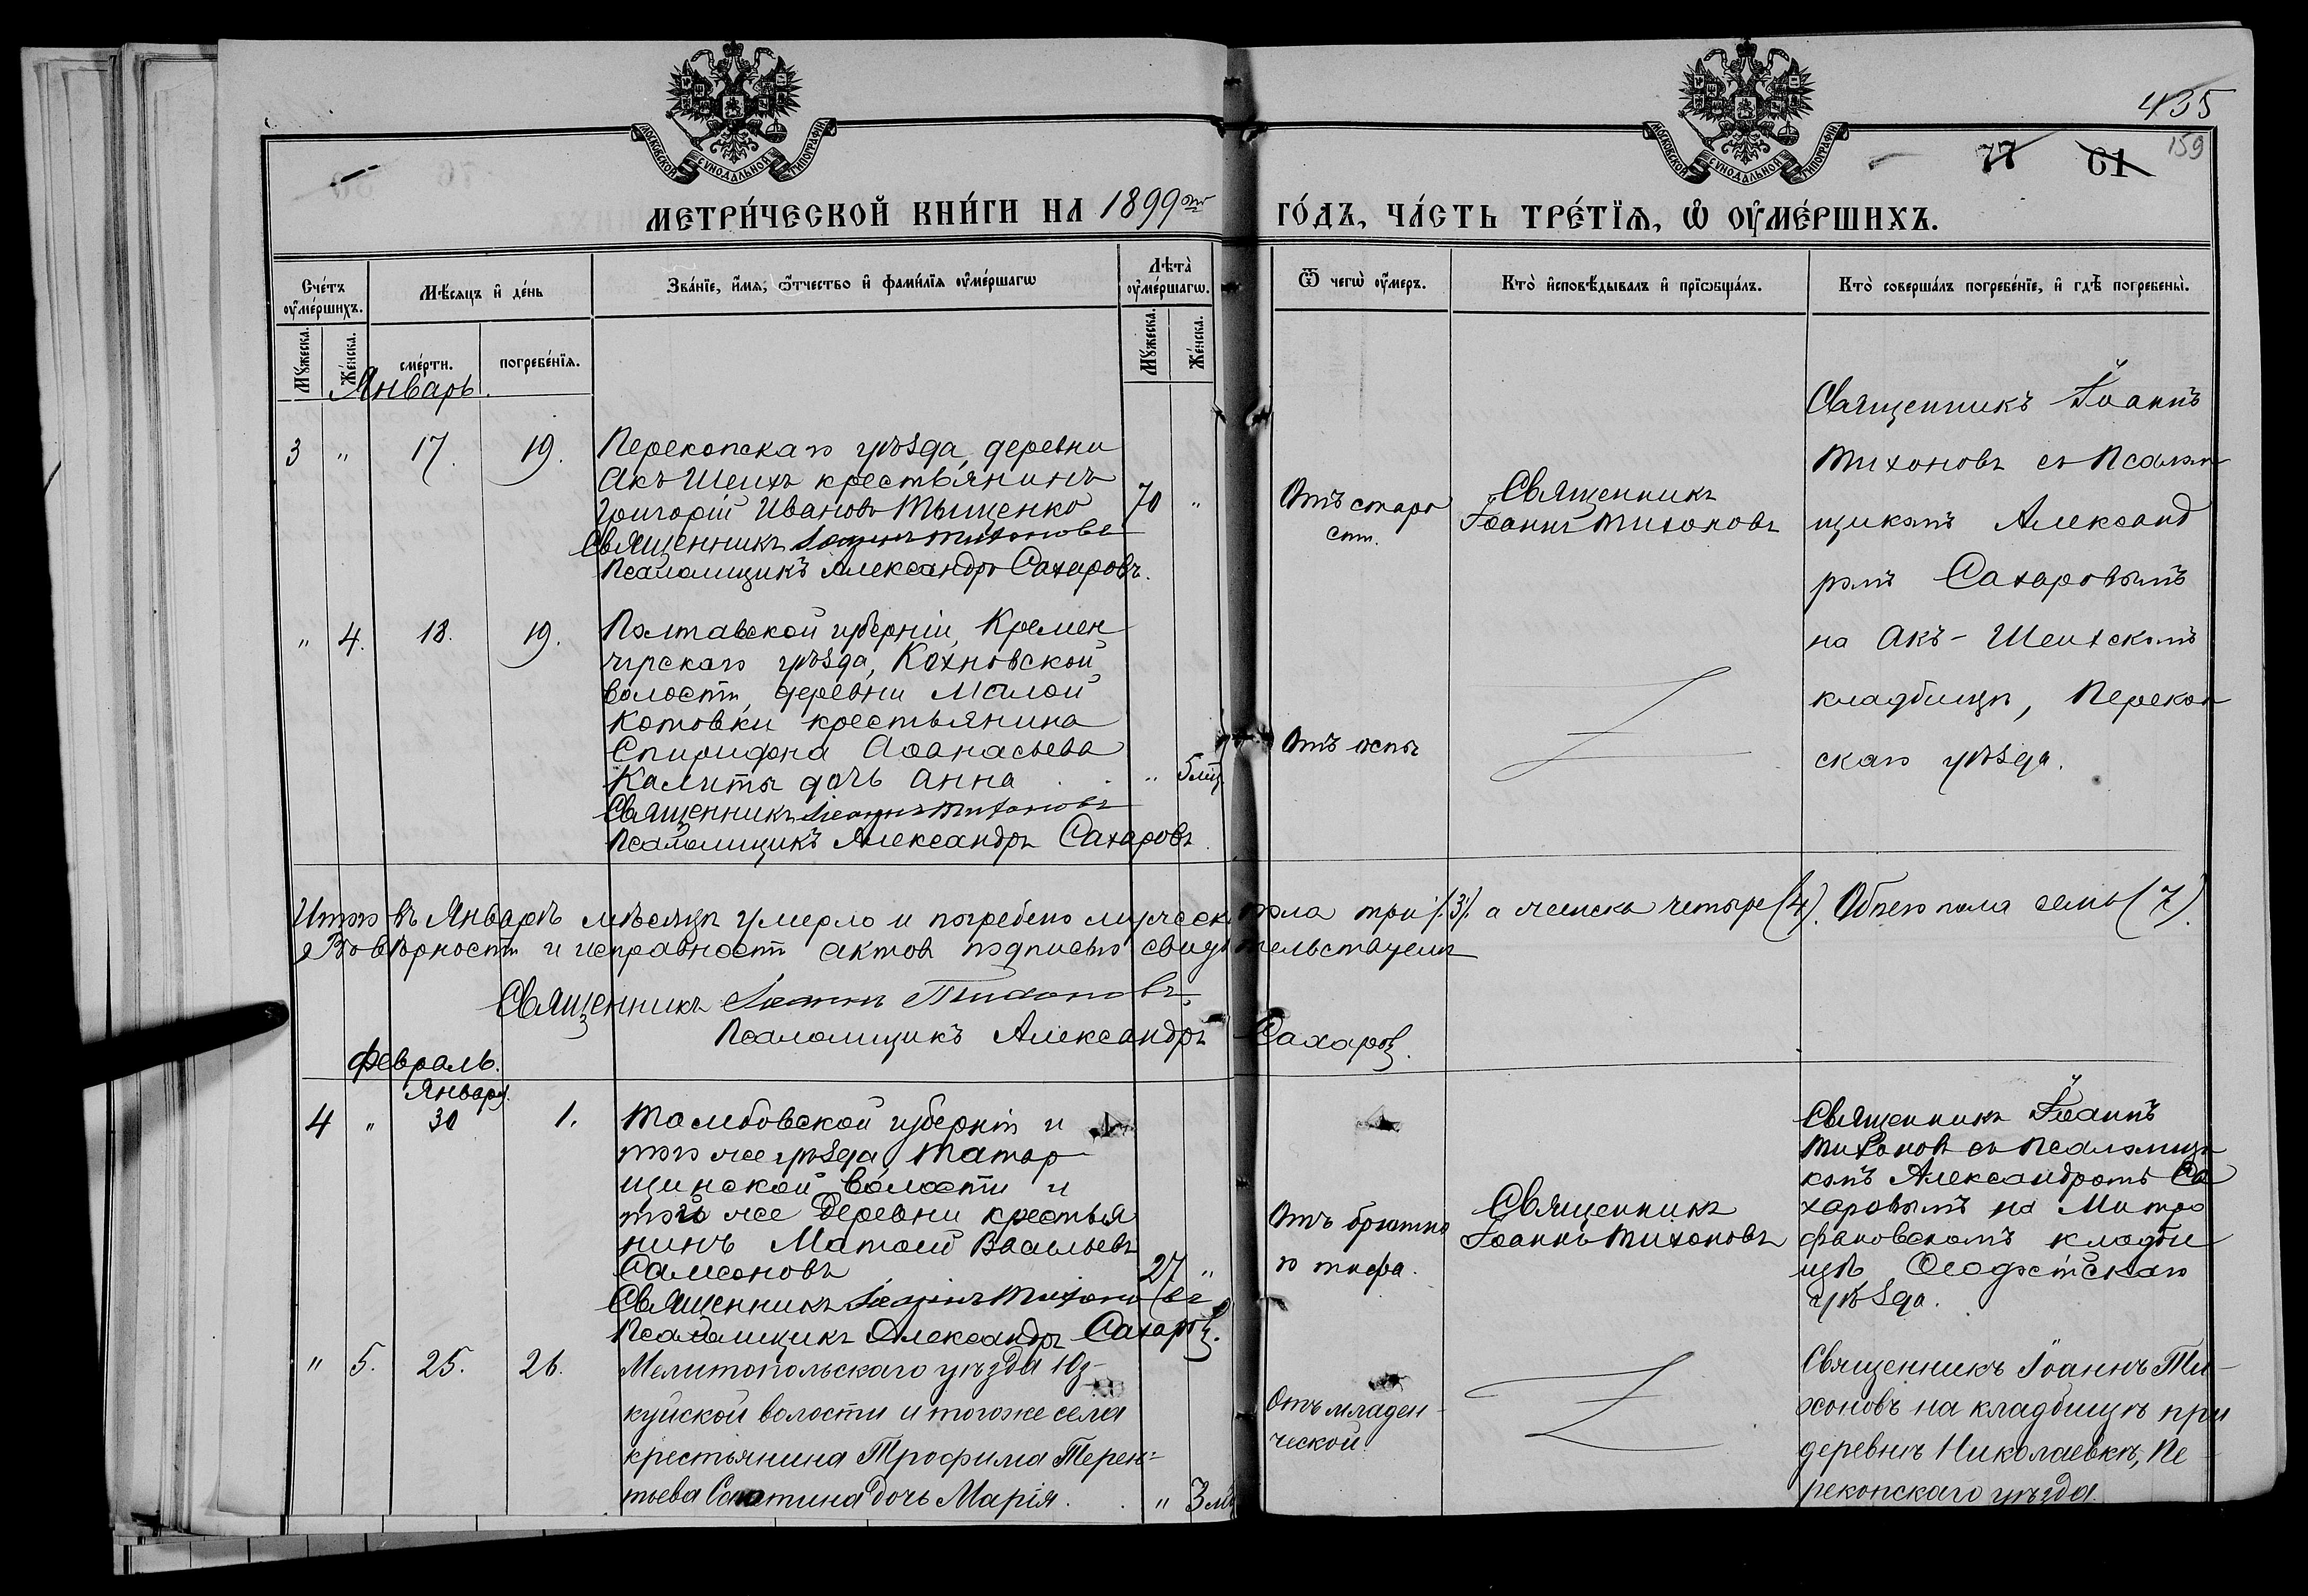 МОСКОВСКОЙ СУНОДАЛЬНОЙ ТИПОГРАФІИ
МОСКОВСКОЙ СУНОДАЛЬНОЙ ТИПОГРАФІИ
435
159
77 61
МЕТРИ́ЧЕСКОЙ КНИ́ГИ НА 1899 ГО́ДЪ, ЧА́СТЬ ТРЕ́ТЇѦ, Ѡ҆ ОУ҆МЕ́РШИХЪ.
Сче́тъ оу҆ме́ршихъ.
Мѣ́сяцъ и҆ де́нь
Зва́нїе, и҆́мѧ, ѻ҆́тчество и҆ фами́лїѧ оу҆ме́ршагѡ
Лѣта̀ оу҆ме́ршагѡ.
Ѿ чегѡ̀ оу҆́меръ.
Кто̀ и҆сповѣ́дывалъ и҆ прїѡбща́лъ.
Кто̀ соверша́лъ погребе́нїе, и҆ гдѣ̀ погребены̀.
Мꙋ́жеска.
Же́нска.
сме́рти.
погребе́нїѧ.
Мꙋ́жеска.
Же́нска.
Январь.
3 " 17. 19.
Перекопскаго уѣзда, деревни
Акъ Шеихъ крестьянинъ
Григорій Ивановъ Тыщенко
70 "
Священникъ Іоаннъ Тихоновъ
Псаломщикъ Александръ Сахаровъ.
Отъ старо
сти.
Священникъ
Іоаннъ Тихоновъ
Священникъ Іоаннъ
Тихоновъ съ Псалом
щикомъ Александ
ромъ Сахаровымъ
на Акъ-Шеихскомъ
кладбищѣ, Перекоп
скаго уѣзда.
" 4. 18. 19.
Полтавской губерніи, Кремен
чугскаго уѣзда, Кохновской
волости, деревни Малой
Котовки крестьянина
Спиридона Аѳанасьева
Калиты дочь Анна
" 5 мц
Священникъ Іоаннъ Тихоновъ
Псаломщикъ Александръ Сахаровъ.
Отъ оспы
Итого въ Январѣ мѣсяцѣ умерло и погребено мужеск. пола три /3/. а женска четыре (4). Обоего пола семь (7).
Въ вѣрности и исправности актов подписью свидѣтельствуемъ
Священникъ Іоаннъ Тихоновъ.
Псаломщикъ Александръ Сахаровъ.
Февраль.
Января.
4 " 30 1.
Тамбовской губерніи и
того же уѣзда, Татар
щинской волости и
той же деревни крестья
нинъ Матѳей Васильевъ
Самсоновъ
27 "
Священникъ Іоаннъ Тихоновъ
Псаломщикъ Александръ Сахаровъ.
Отъ брюшна
го тифа.
Священникъ
Іоаннъ Тихоновъ
Священникъ Іоаннъ
Тихоновъ съ псаломщи
комъ Александромъ Са
харовымъ на Митро
фановскомъ кладби
щѣ Ѳеодосійскаго
уѣзда.
" 5. 25. 26.
Мелитопольскаго уѣзда Юз-
куйской волости и того же села
крестьянина Трофима Терен=
тьева дочь Марія.
" 3 мц
Отъ младен
ческой.
Священникъ Іоаннъ Ти-
хоновъ на кладбищѣ при
деревнѣ Николаевкѣ, Пе
рекопскаго уѣзда.